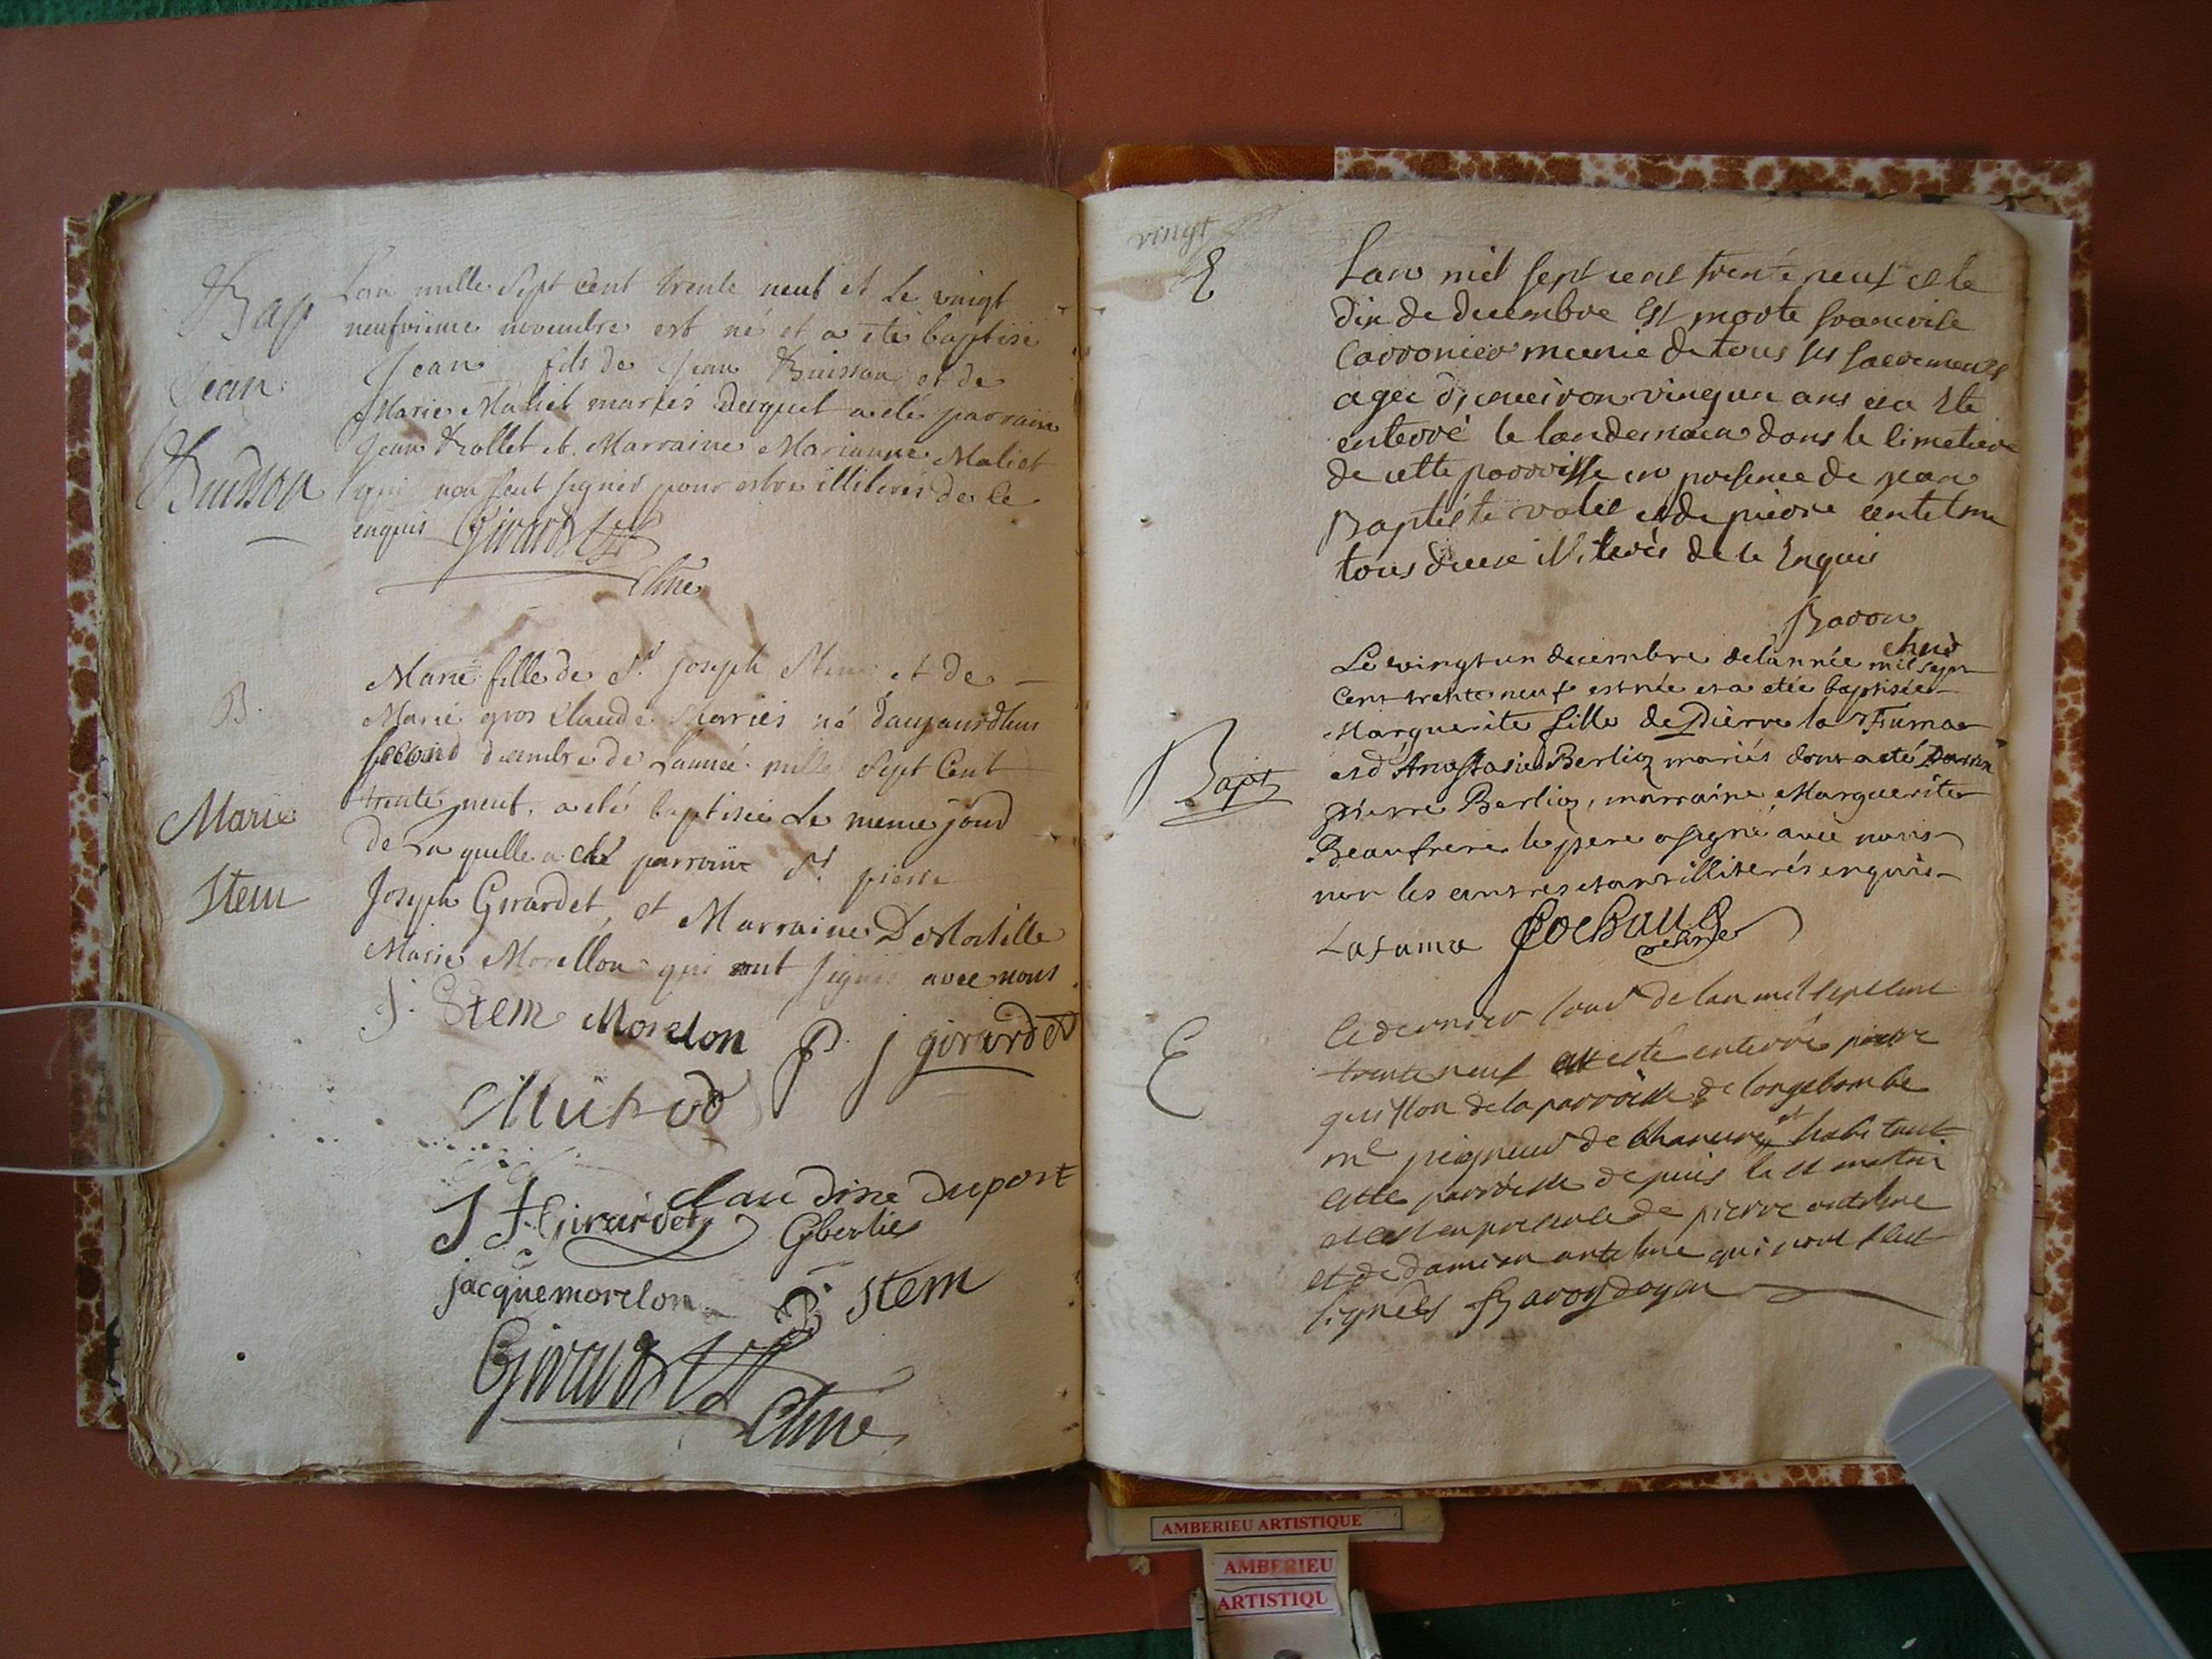 Bap
Jean
Buisson
Lan mille Sept Cent trente neuf et le vingt
neufvieme novembre est né et a eté baptisé
Jean fils de Jean Buisson et de
Marie Maliet mariés duquel a eté parrain
Jean Frollet et Marraine Marianne Maliet
qui non sceut signer pour estre illiterés de ce
enquis Girardet
Chne
B.
Marie
Stem
Marie fille de Sr. joseph Stem et de
Marie gros claude Mariés né daujourdhui
second decembre de Lannée mille Sept Cent
trente neuf, a eté baptisée Le meme jour
de Laquelle a eté parrain Sr. pierre
Joseph Girardet, et Marraine Demoiselle
Marie Morellon qui ont signés avec nous
J. Stem Morelon P. j girardet
J F Girardet Claudine Duport
Gberlie
jacquemorelon Stem
Girardet
Chne
vingt
E
Lan mil sept cent trente neuf et le
dix de decembre est morte francoise
Carronier munie de tous ses sacremens
agee denviron vingun ans et a ete
enterré le landemain dans le simetiere
de cette parroisse en presence de jean
Baptiste valet et de pierre entelme
tous deux illiterés de le Enquis
Baron
chne
Bapt
Le vingt un decembre de lannée mil sept
Cent trente neuf est née et a etée baptisée
Marguerite fille de Pierre la Fuma
et d'Anastasie Berlioz mariés dont a eté Parrin
pierre Berlioz, marraine Marguerite
Beaufrere le pere a signé avec nous
non les autres etant illiterés enquis
Lafuma Cochaud
E
le dernier jour de lan mil sept cent
trente neuf a esté enterré pierre
guillon de la parroisse de longecombe
me peigneur de chanvre et habitant
cette parroisse depuis la st martin
et cest en presence de pierre antelme
et de damien antelme qui nont sceu
signés Baron doyen
AMBERIEU ARTISTIQUE
AMBERIEU
ARTISTIQU